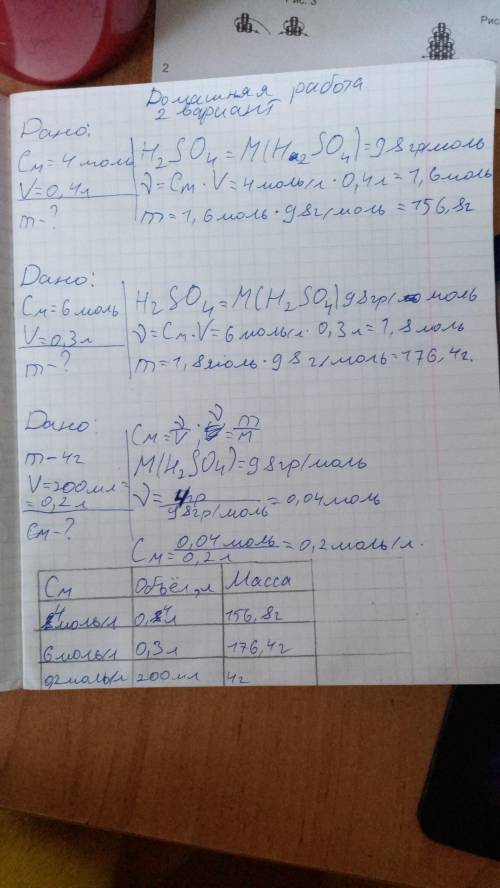 Рис. 3
Рис.
2
Домашняя работа
2 вариант
Дано:
Cм=4 моль
V=0,4л
m-?
H₂SO₄=M(H₂SO₄)=98гр/моль
ν=Cм·V=4моль/л·0,4л=1,6моль
m=1,6моль·98г/моль=156,8г
Дано:
Cм=6моль
V=0,3л
m-?
H₂SO₄=M(H₂SO₄)98гр/моль
ν=Cм·V=6моль/л·0,3л=1,8моль
m=1,8моль·98г/моль=176,4г.
Дано:
m-4г
V=200мл=
=0,2л
Cм-?
Cм=ν/V · ν=m/M
M(H₂SO₄)=98гр/моль
ν=4гр/98гр/моль=0,04моль
Cм=0,04моль/0,2л=0,2моль/л.
Cм Объём,л Масса
4моль/л 0,4л 156,8г
6моль/л 0,3л 176,4г
0,2моль/л 200мл 4г